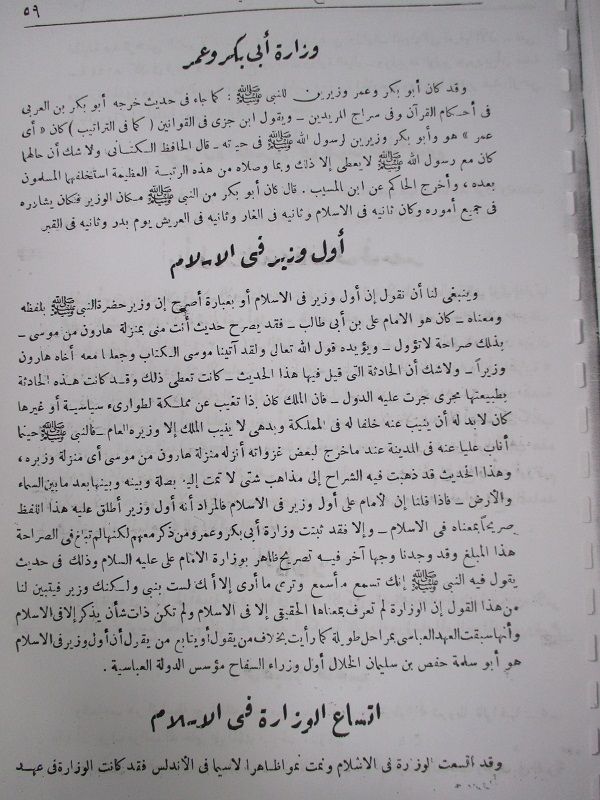 ٥٩
وزارة أبي بكر وعمر
وقد كان أبو بكر وعمر وزيرين للنبي ﷺ : كما جاء فى حديث خرجه أبو بكر بن العربى
فى أحكام القرآن وفى سراج المريدين ــ ويقول ابن جزى فى القوانين ( كما فى التراتيب ) كان « أى
عمر » هو وأبو بكر وزيرين لرسول الله ﷺ فى حياته ــ قال الحافظ الكتانى ولا شك أن حالهما
كان مع رسول الله ﷺ لا يعطى إلا ذلك وبما وصلاه من هذه الرتبة العظيمة استخلفهما المسلمون
بعده ، وأخرج الحاكم عن ابن المسيب . قال كان أبو بكر من النبى ﷺ مكان الوزير فكان يشاوره
فى جميع أموره وكان ثانيه فى الاسلام وثانيه فى الغار وثانيه فى العريش يوم بدر وثانيه فى القبر
أول وزير فى الاسلام
وينبغى لنا أن نقول إن أول وزير فى الاسلام أو بعبارة أصبح إن وزير حضرة النبى ﷺ بلفظه
ومعناه ــ كان هو الامام على بن أبى طالب ــ فقد يصرح حديث أنت منى بمنزلة هارون من موسى ــ
بذلك صراحة لا تؤول ــ ويؤيده قول الله تعالى ولقد آتينا موسى الكتاب وجعلنا معه أخاه هارون
وزيراً ــ ولا شك أن الحادثة التى قيل فيها هذا الحديث ــ كانت تعطى ذلك وقد كانت هذه الحادثة
بطبيعتها مجرى جرت عليه الدول ــ فان الملك كان إذا تغيب عن مملكة لطوارىء سياسية أو غيرها
كان لابد له أن ينيب عنه خلفا له فى المملكة وبدهى لا ينيب الملك إلا وزيره العام ــ فالنبى ﷺ حينما
أناب عليا عنه فى المدينة عند ماخرج لبعض غزواته أنزله منزلة هارون من موسى أى منزلة وزيره ،
وهذا الحديث قد ذهبت فيه الشراح إلى مذاهب شتى لا تمت إليه بصلة وبينه وبينها بعد ما بين السماء
والأرض ــ فاذا قلنا إن الامام على أول وزير فى الاسلام فالمراد أنه أول وزير أطلق عليه هذا اللفظ
صريحاً بمعناه فى الاسلام ــ وإلا فقد ثبتت وزارة أبى بكر وعمر ومن ذكر معهم لكنها لم تبلغ فى الصراحة
هذا المبلغ وقد وجدنا وجها آخر فيه تصريح ظاهر بوزارة الامام على عليه السلام وذلك فى حديث
يقول فيه النبى ﷺ إنك تسمع ما أسمع وترى ما أرى إلا أنك لست بنبى ولكنك وزير فيتبين لنا
من هذا القول إن الوزارة لم تعرف بمعناها الحقيقى إلا فى الاسلام ولم تكن ذات شأن يذكر إلا فى الاسلام
وأنها سبقت العهد العباسى بمراحل طويلة كما رأيت بخلاف من يقول أو يتابع من يقول أن أول وزير فى الاسلام
هو أبو سلمة حفص بن سليمان الخلال أول وزراء السفاح مؤسس الدولة العباسية .
اتساع الوزارة فى الاسلام
وقد اتسعت الوزارة فى الاسلام ونمت نموا ظاهرا لاسيما فى الأندلس فقد كانت الوزارة فى عهد